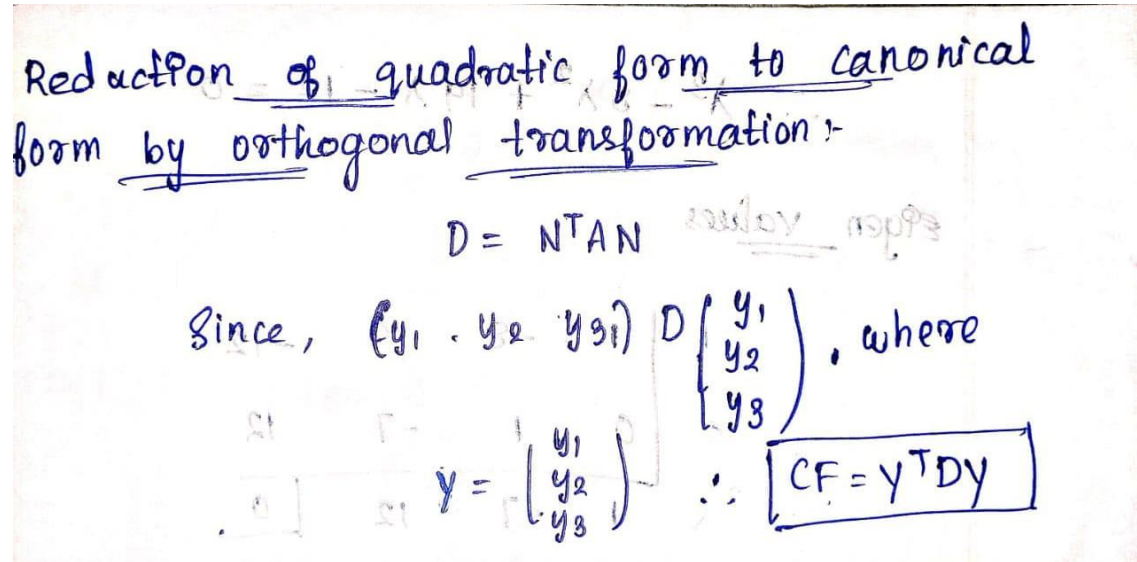 Reduction of quadratic form to canonical
form by orthogonal transformation :-
D = NᵀAN
Since, (y₁ . y₂ y₃) D (y₁ y₂ y₃) , where
Y = (y₁ y₂ y₃) ∴ CF = YᵀDY